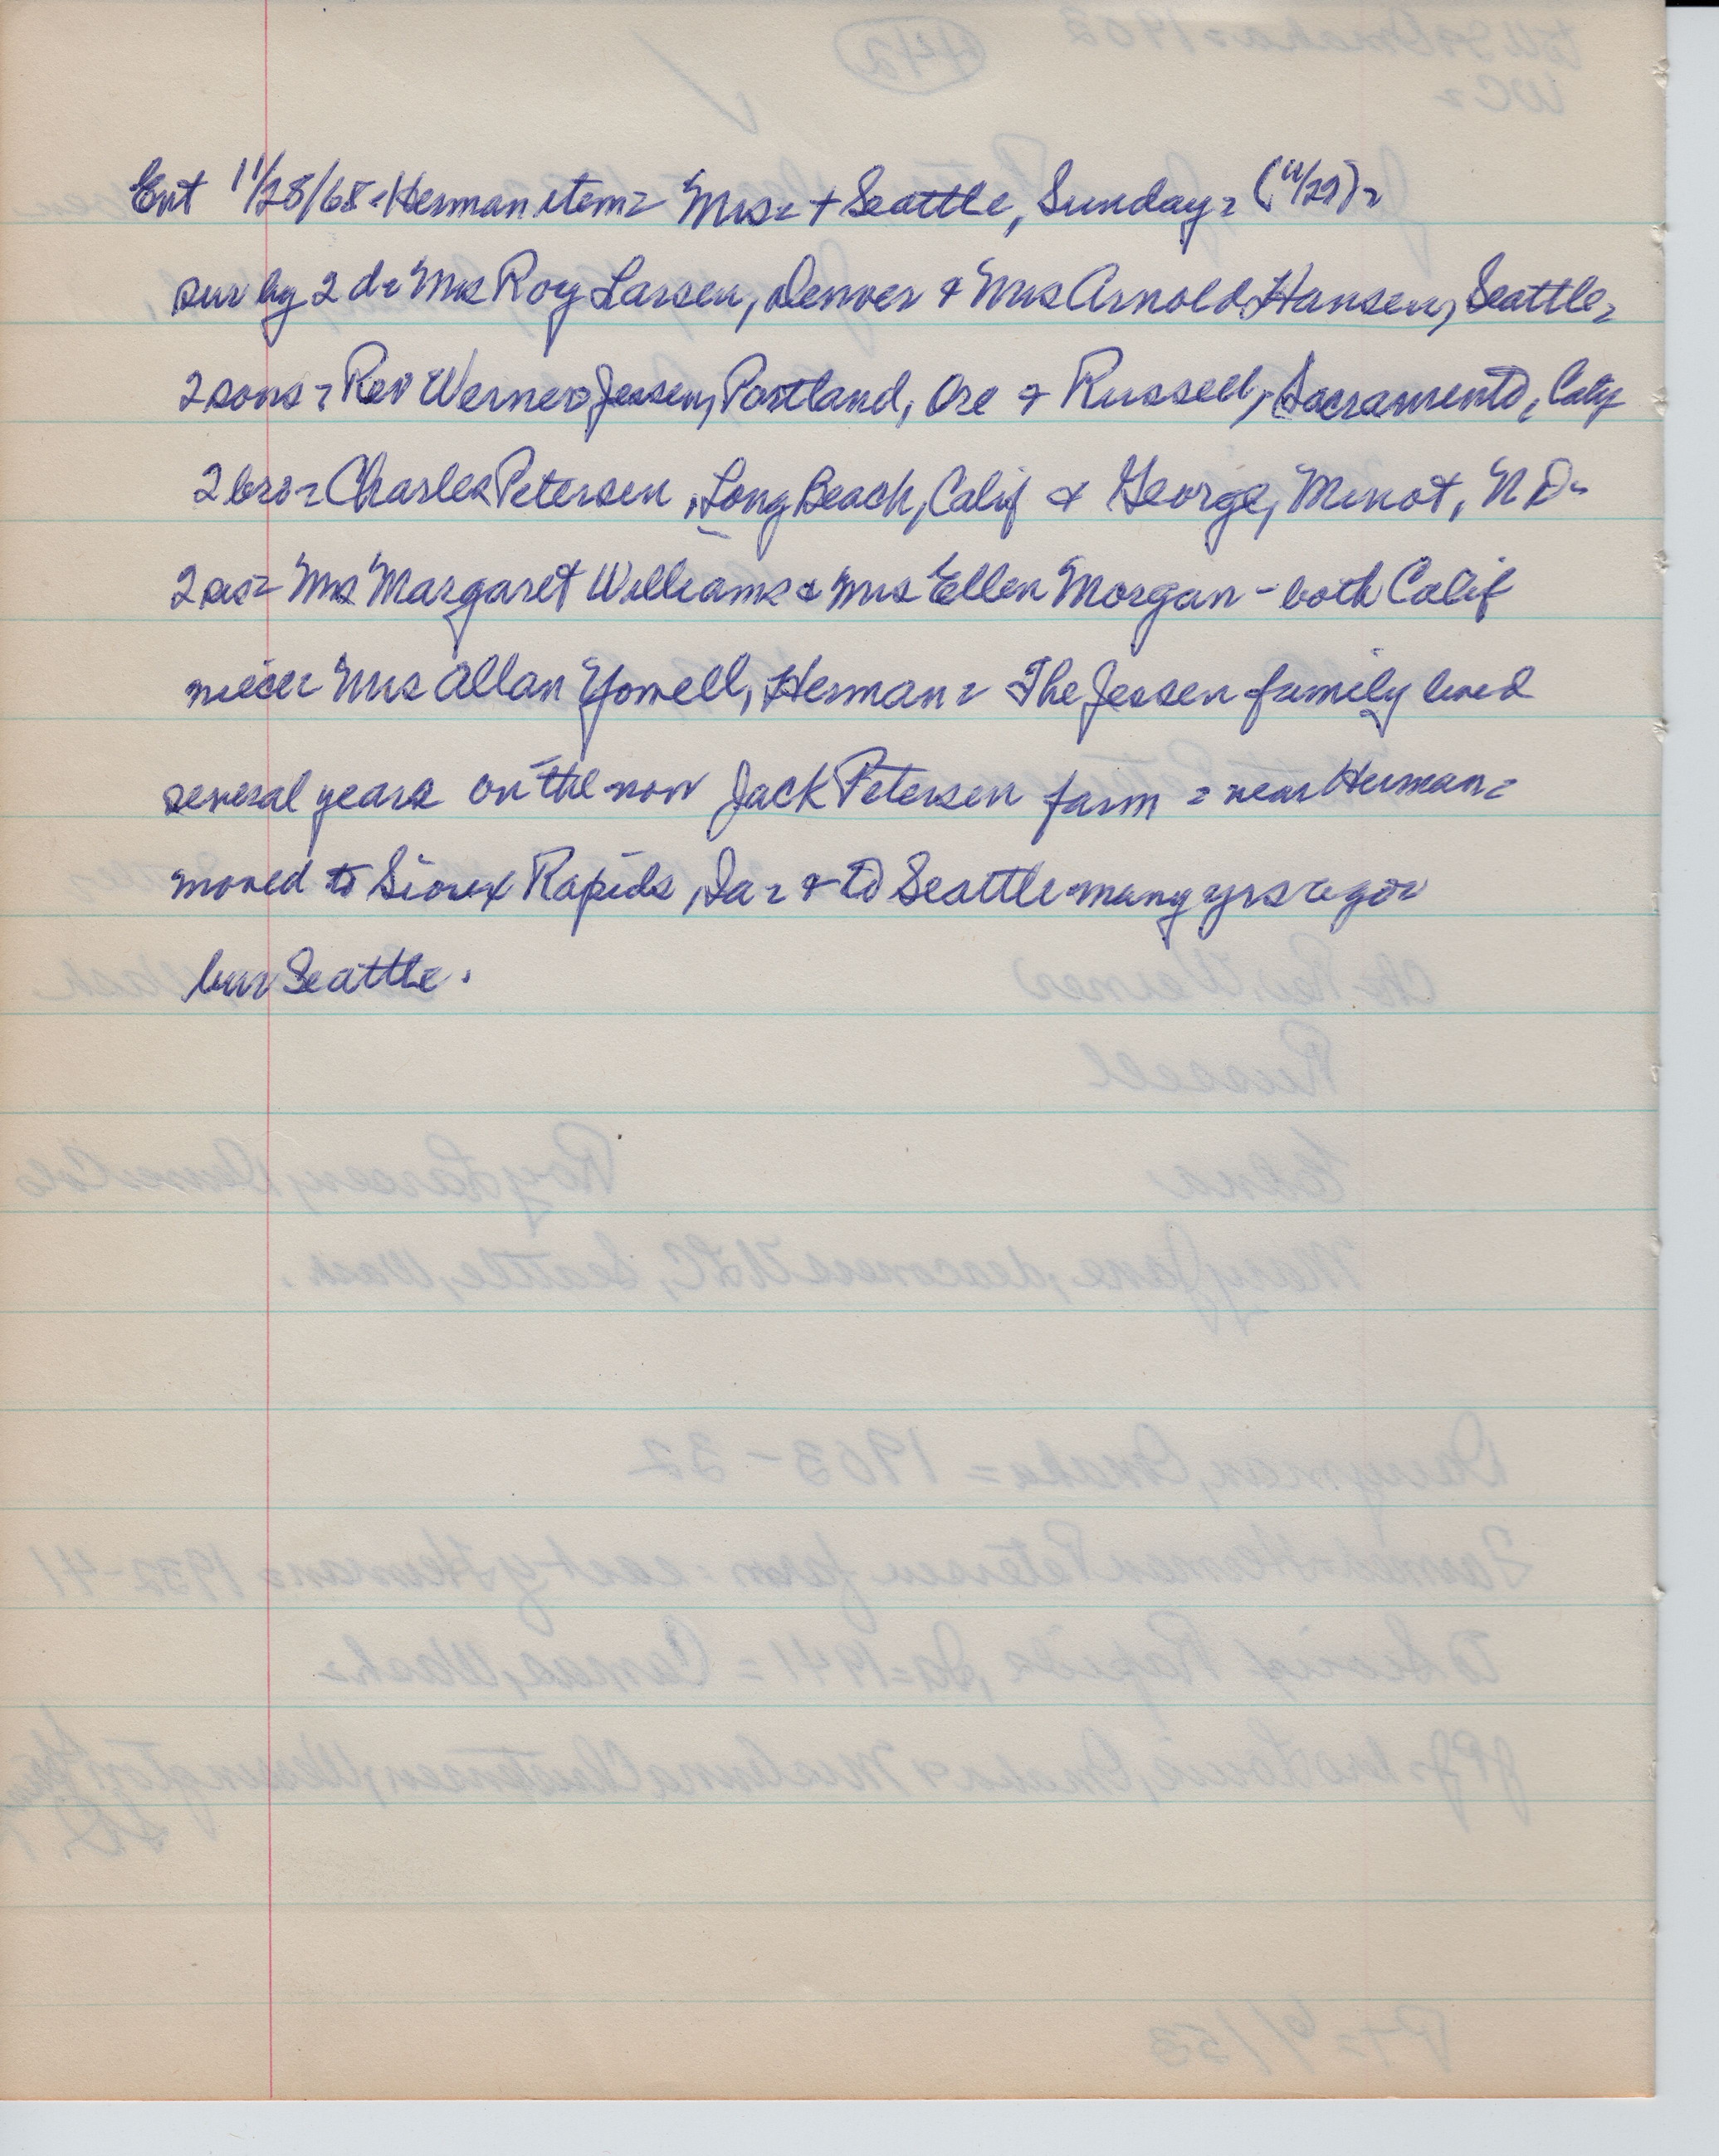 Ent 11/28/68 = Herman item = Mrs = + Seattle, Sunday = (11/29) =
sur by 2 d = Mrs Roy Larsen, Denver & Mrs Arnold Hansen, Seattle =
2 sons = Rev Werner Jessen, Portland, Ore & Russell, Sacramento, Calif
2 bro = Charles Petersen, Long Beach, Calif & George, Minot, N D =
2 sis = Mrs Margaret Williams & Mrs Ellen Morgan - both Calif
niece = Mrs Allan Yowell, Herman = The Jessen family lived
several years on the now Jack Petersen farm = near Herman =
moved to Sioux Rapids, Ia = & to Seattle many yrs ago =
bur Seattle.